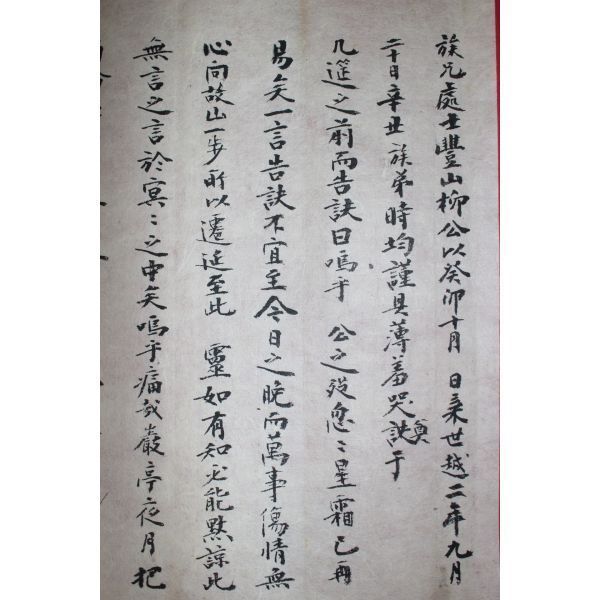 族兄處士豐山柳公以癸卯十月 日棄世越二年九月
二十日辛丑族弟時均謹具薄羞哭訣于
奠
几筵之前而告訣曰嗚乎 公之歿忽〻星霜已再
易矣一言告訣不宜至今日之晚而萬事傷情無
心向故山一步所以遷延至此 靈如有知必能默諒此
無言之言於冥〻之中矣嗚乎痛哉巖亭夜月把